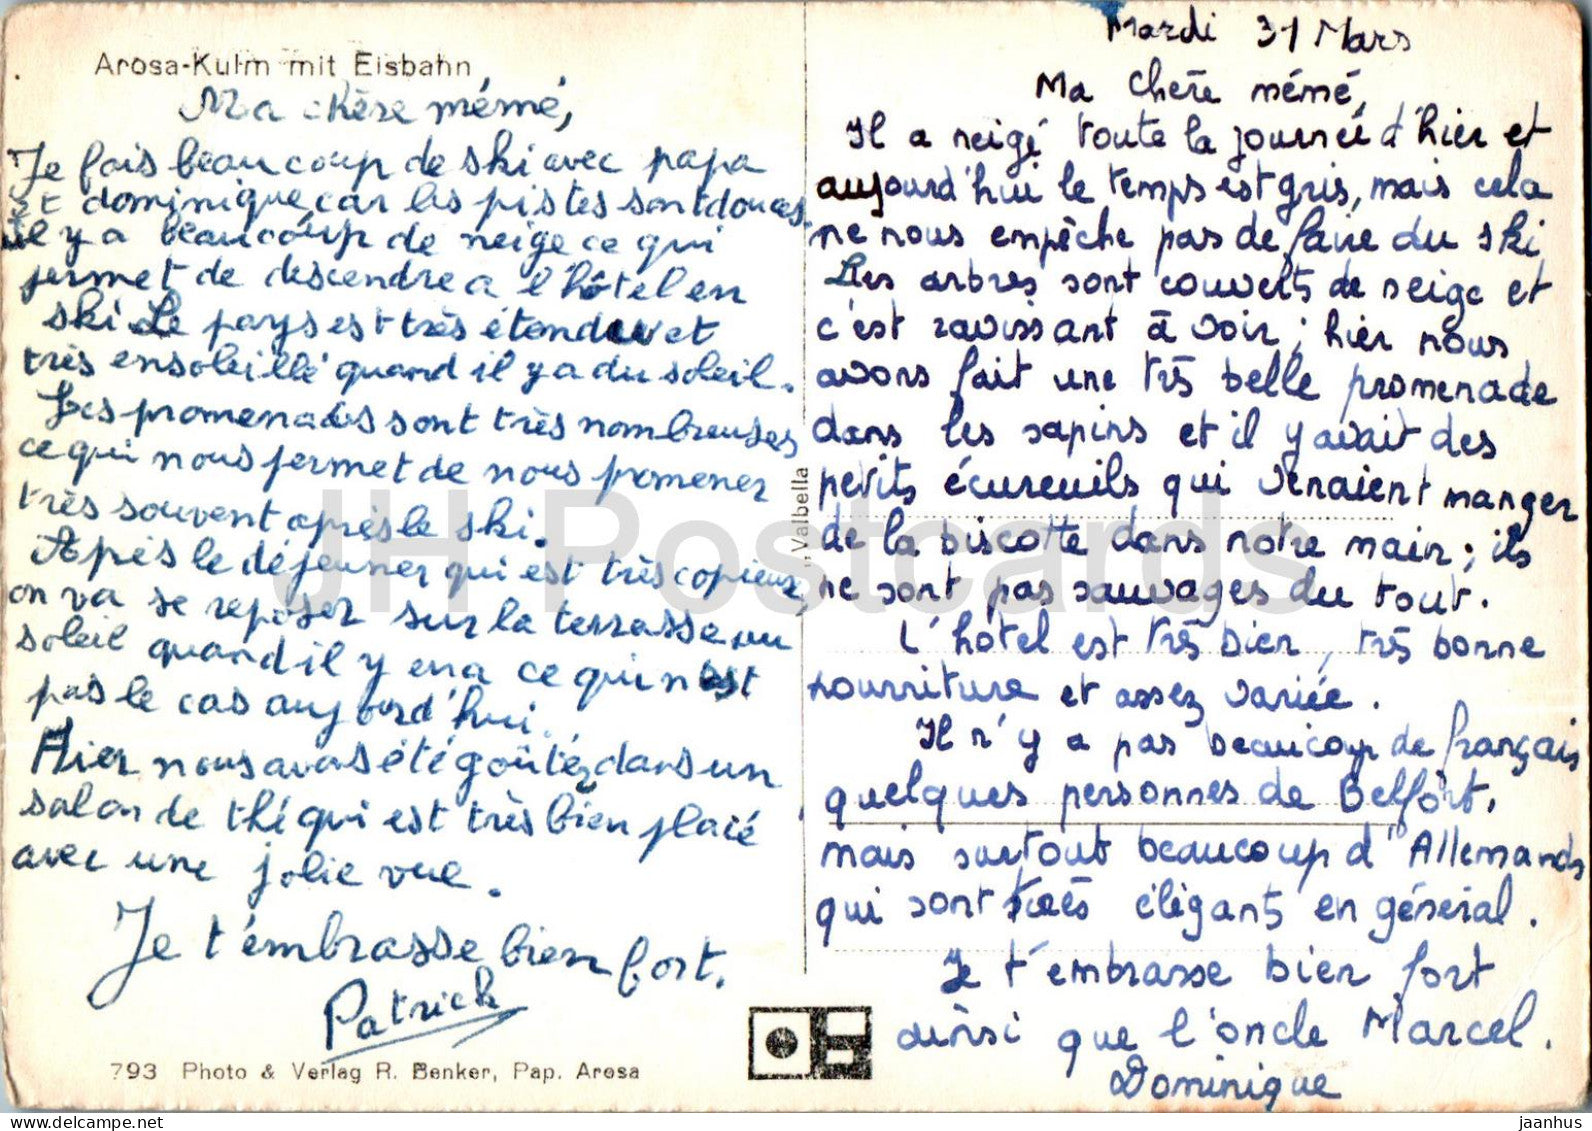 Arosa-Kulm mit Eisbahn
Ma chère mémé,
Je fais beaucoup de ski avec papa
et dominique, car les pistes sont douces.
il y a beaucoup de neige ce qui
permet de descendre a l'hôtel en
ski. Le pays est très étendu et
très ensoleillé quand il y a du soleil.
Les promenades sont très nombreuses
ce qui nous permet de nous promener
très souvent après le ski.
Après le déjeuner qui est très copieux,
on va se reposer sur la terrasse au
soleil quand il y en a ce qui n'est
pas le cas aujourd'hui.
Hier nous avons été goûter dans un
salon de thé qui est très bien placé
avec une jolie vue.
Je t'embrasse bien fort.
Patrick
793 Photo & Verlag R. Benker, Pap. Arosa
„Valbella
Mardi 31 Mars
Ma chère mémé,
Il a neigé toute la journée d'hier et
aujourd'hui le temps est gris, mais cela
ne nous empèche pas de faire du ski
Les arbres sont couverts de neige et
c'est ravissant à voir ; hier nous
avons fait une très belle promenade
dans les sapins et il y avait des
petits écureuils qui venaient manger
de la biscotte dans notre main ; ils
ne sont pas sauvages du tout.
L'hôtel est très bien, très bonne
nourriture et assez variée.
Il n'y a pas beaucoup de français
quelques personnes de Belfort,
mais surtout beaucoup d'Allemands
qui sont très élégants en général.
Je t'embrasse bien fort
ainsi que l'oncle Marcel.
Dominique
JH Postcards
HipPostcard.com
jaanhus